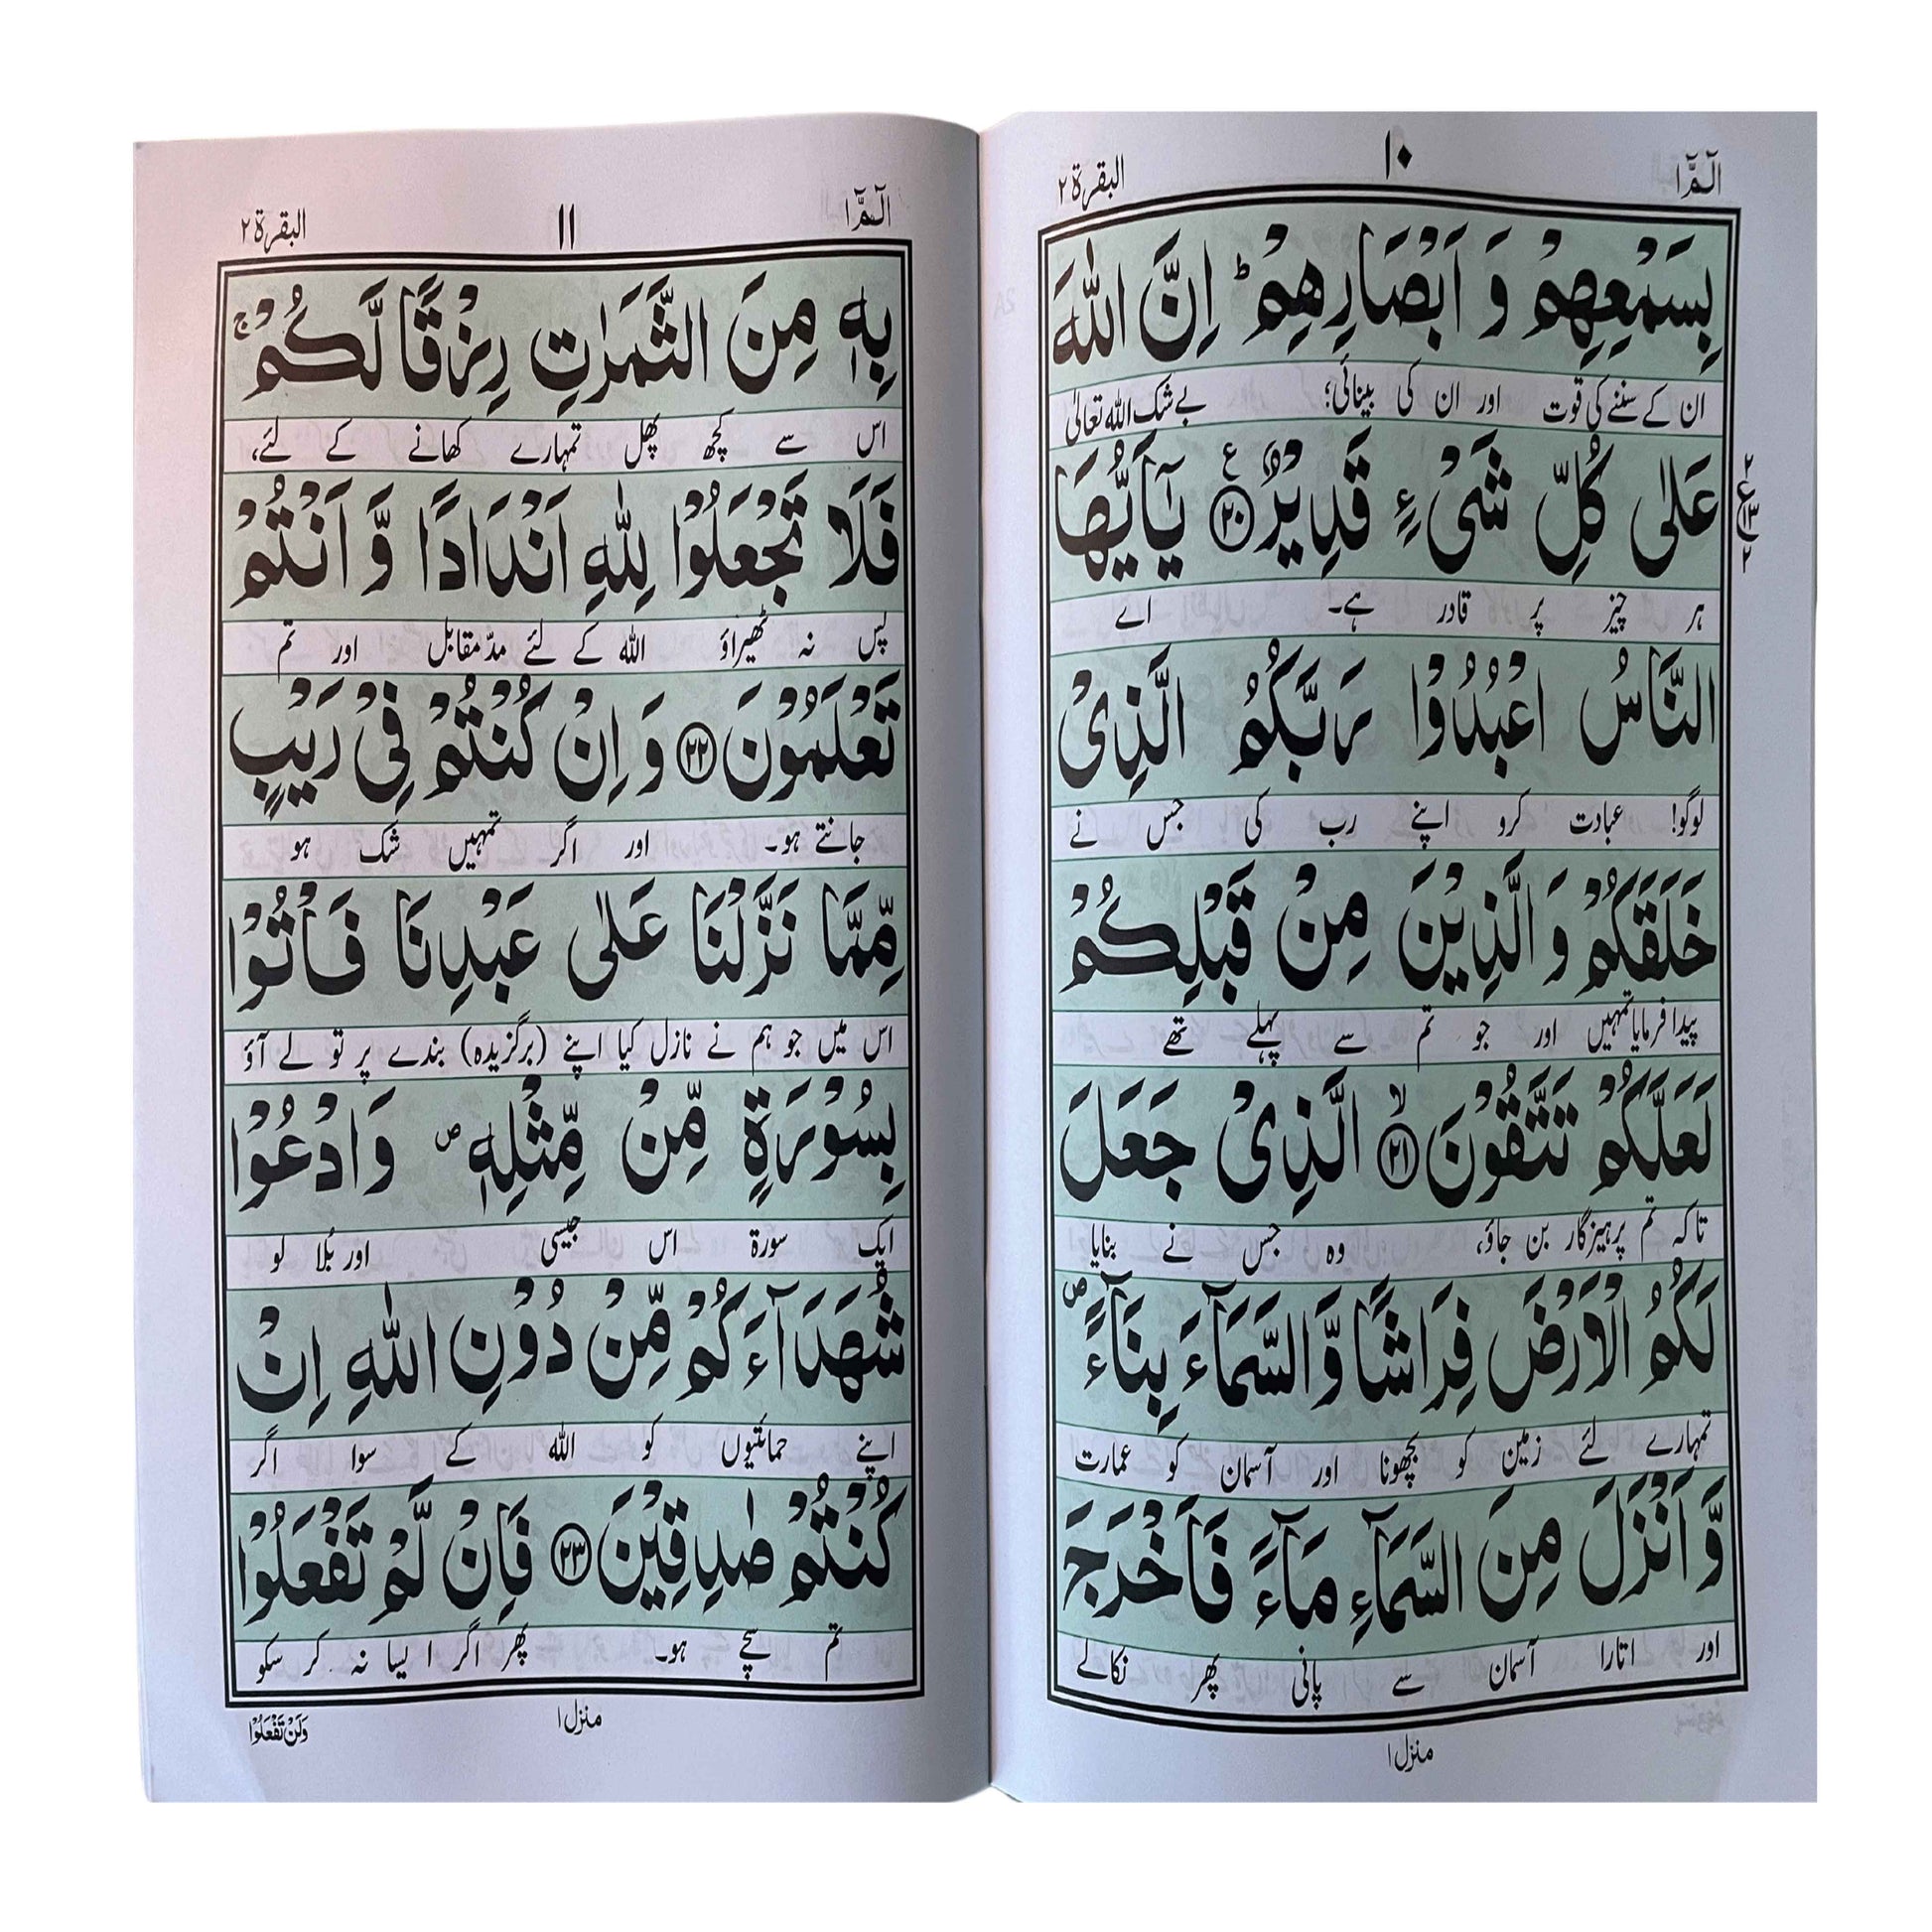 الٓمّٓ ۱
۱۰
البقرۃ ۲
بِسَمْعِهِمْ وَ اَبْصَارِهِمْ ؕ اِنَّ اللّٰهَ
ان کے سننے کی قوت اور ان کی بینائی؛ بے شک اللہ تعالیٰ
عَلٰى كُلِّ شَیْءٍ قَدِیْرٌ ۟۠ ﴿۲۰﴾ ع یٰۤاَیُّهَا
ہر چیز پر قادر ہے۔ اے
۲
ع
۱۳
۲
النَّاسُ اعْبُدُوْا رَبَّكُمُ الَّذِیْ
لوگو! عبادت کرو اپنے رب کی جس نے
خَلَقَكُمْ وَ الَّذِیْنَ مِنْ قَبْلِكُمْ
پیدا فرمایا تمہیں اور جو تم سے پہلے تھے
لَعَلَّكُمْ تَتَّقُوْنَ ۙ﴿۲۱﴾ الَّذِیْ جَعَلَ
تاکہ تم پرہیزگار بن جاؤ، وہ جس نے بنایا
لَكُمُ الْاَرْضَ فِرَاشًا وَّ السَّمَآءَ بِنَآءً ۪
تمہارے لئے زمین کو بچھونا اور آسمان کو عمارت
وَّ اَنْزَلَ مِنَ السَّمَآءِ مَآءً فَاَخْرَجَ
اور اتارا آسمان سے پانی پھر نکالے
منزل ۱
الٓمّٓ ۱
۱۱
البقرۃ ۲
بِهٖ مِنَ الثَّمَرٰتِ رِزْقًا لَّكُمْ ۚ
اس سے کچھ پھل تمہارے کھانے کے لئے،
فَلَا تَجْعَلُوْا لِلّٰهِ اَنْدَادًا وَّ اَنْتُمْ
پس نہ ٹھیراؤ اللہ کے لئے مدّمقابل اور تم
تَعْلَمُوْنَ ﴿۲۲﴾ وَ اِنْ كُنْتُمْ فِیْ رَیْبٍ
جانتے ہو۔ اور اگر تمہیں شک ہو
مِّمَّا نَزَّلْنَا عَلٰى عَبْدِنَا فَاْتُوْا
اس میں جو ہم نے نازل کیا اپنے (برگزیدہ) بندے پر تو لے آؤ
بِسُوْرَةٍ مِّنْ مِّثْلِهٖ ۪ وَ ادْعُوْا
ایک سورۃ اس جیسی اور بُلا لو
شُهَدَآءَكُمْ مِّنْ دُوْنِ اللّٰهِ اِنْ
اپنے حمائتیوں کو اللہ کے سوا اگر
كُنْتُمْ صٰدِقِیْنَ ﴿۲۳﴾ فَاِنْ لَّمْ تَفْعَلُوْا
تم سچے ہو۔ پھر اگر ایسا نہ کر سکو
منزل ۱
وَلَنْ تَفْعَلُوْا